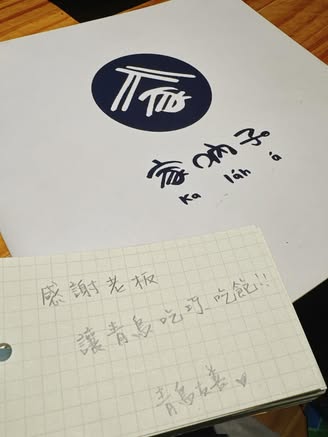 Ka láh á
感謝老板
讓青鳥吃巧 吃飽!!
青鳥友善♥